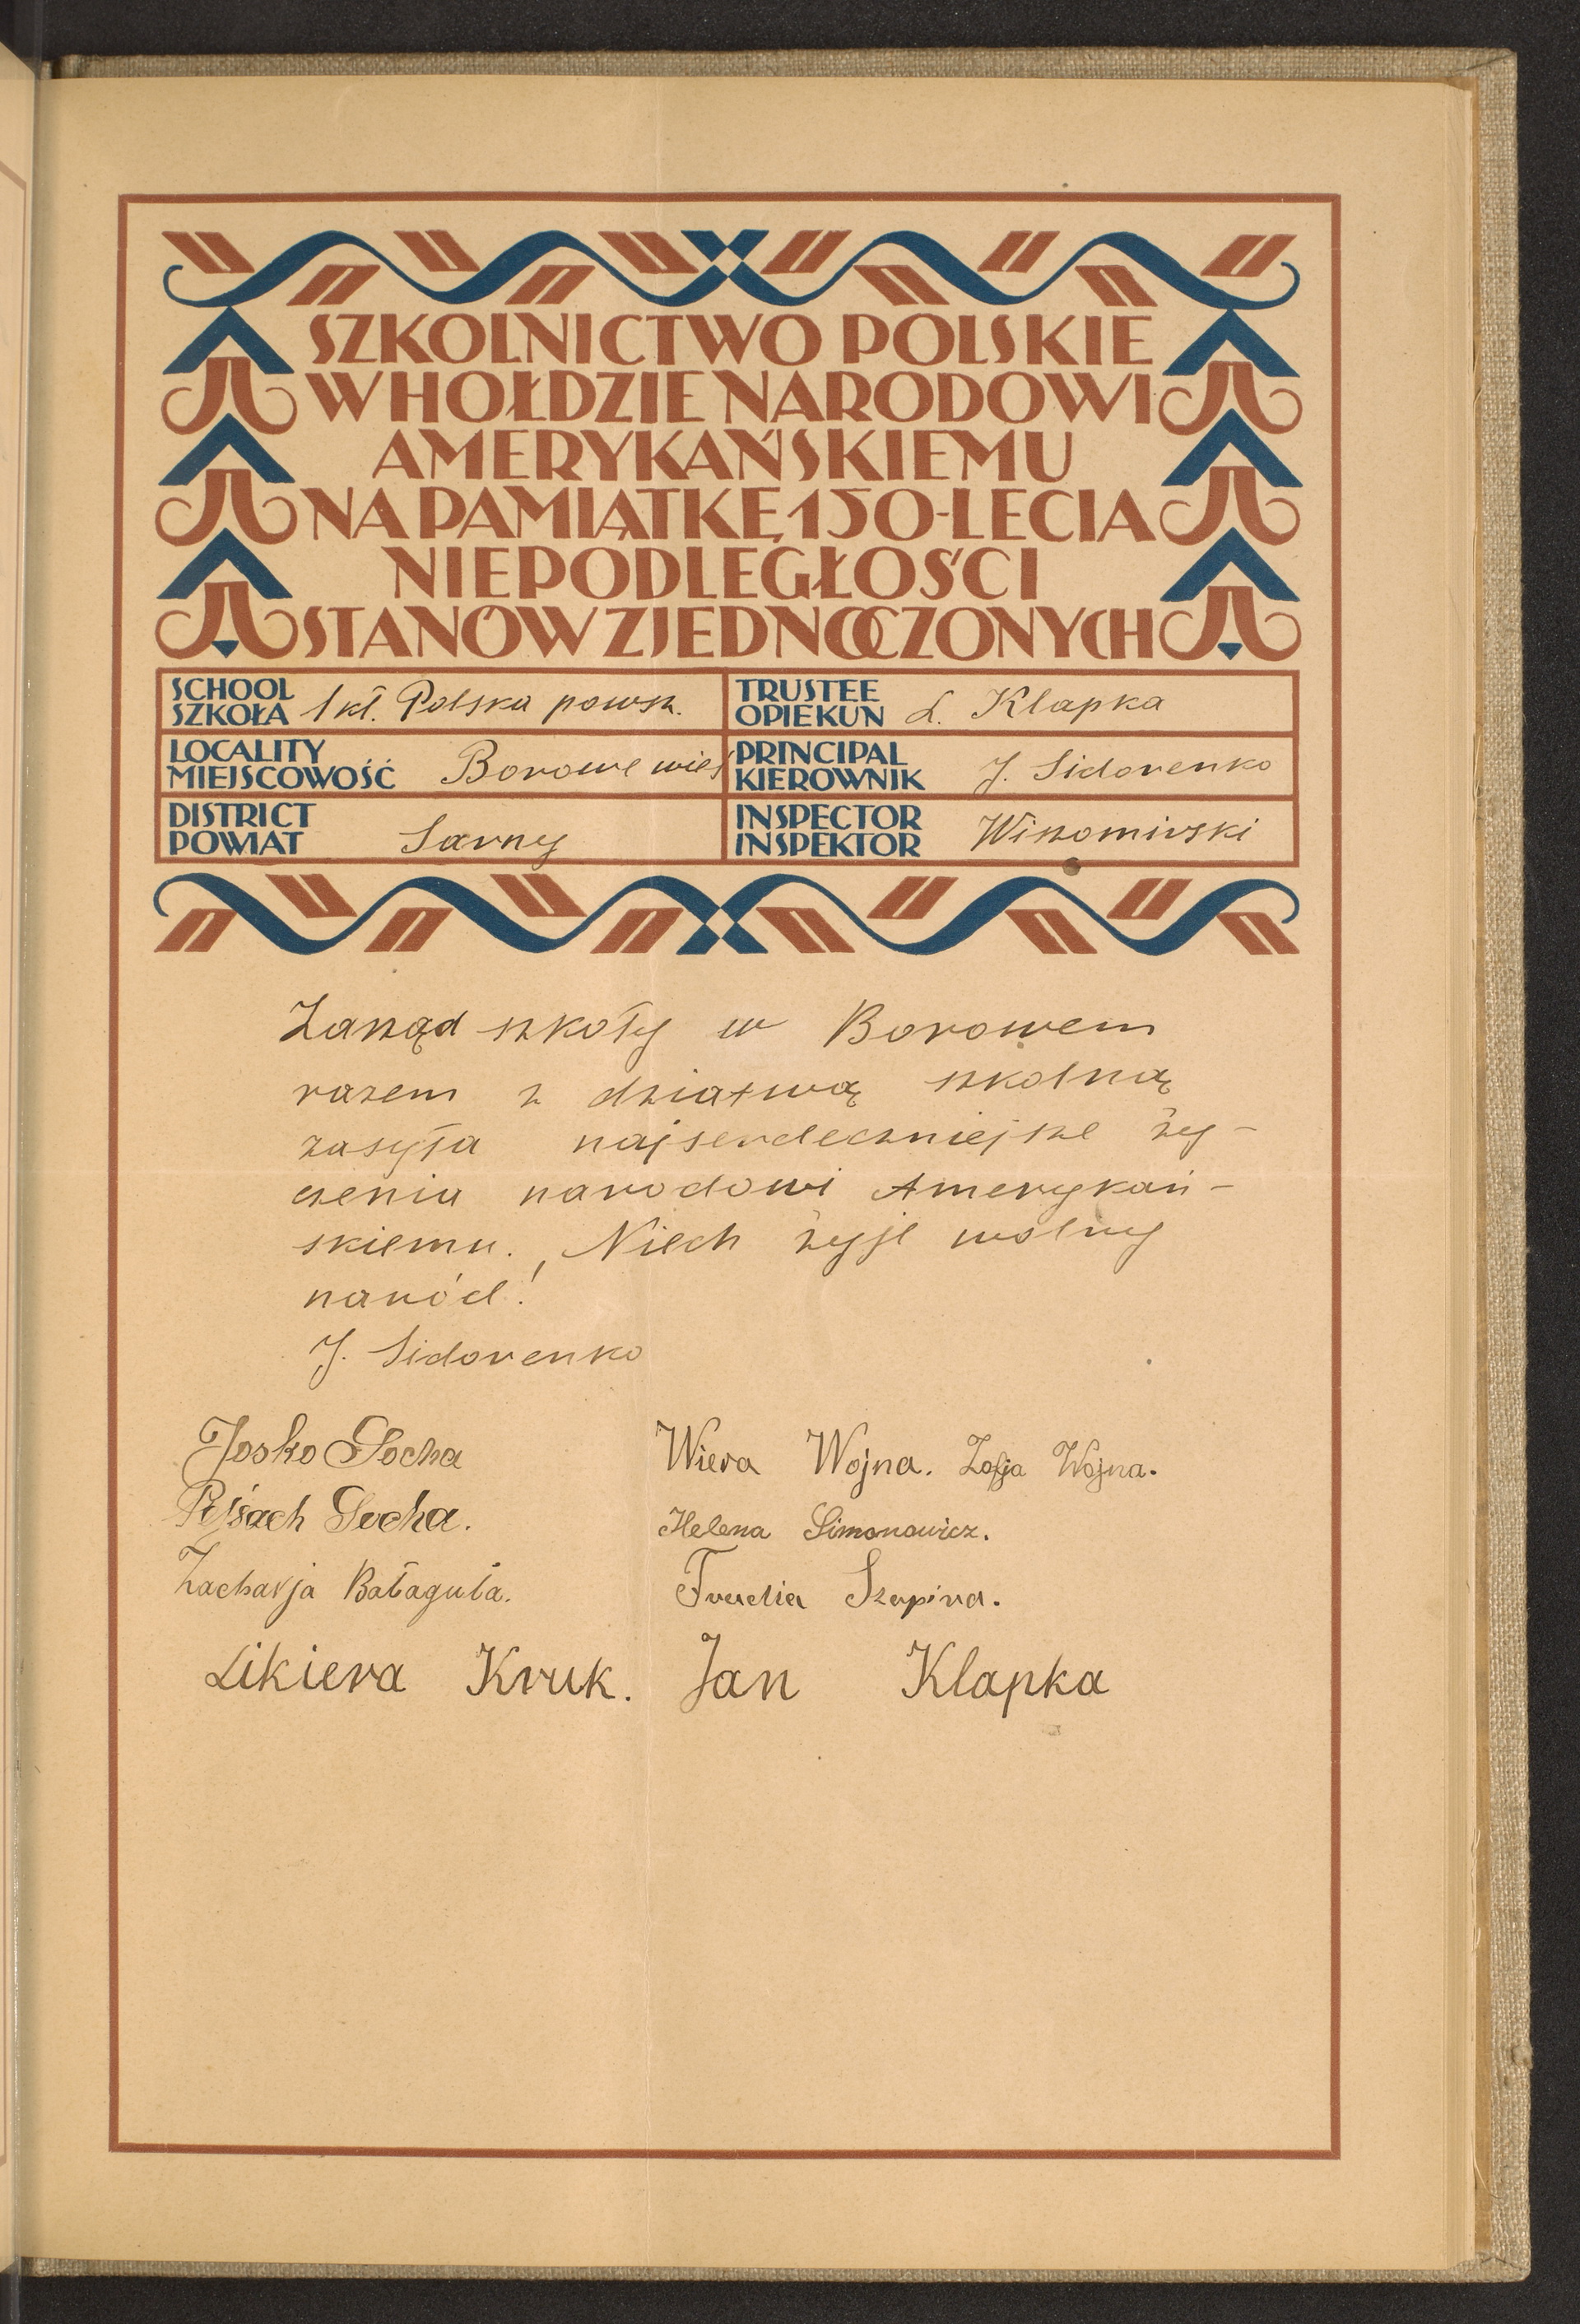 SZKOLNICTWO POLSKIE
W HOŁDZIE NARODOWI
AMERYKAŃSKIEMU
NA PAMIĄTKĘ 150-LECIA
NIEPODLEGŁOŚCI
STANÓW ZJEDNOCZONYCH
SCHOOL
SZKOŁA 1 kl. Polska powsz.
TRUSTEE
OPIEKUN L. Klapka
LOCALITY
MIEJSCOWOŚĆ Borowe wieś
PRINCIPAL
KIEROWNIK J. Sidorenko
DISTRICT
POWIAT Sarny
INSPECTOR
INSPEKTOR Wiszomirski
Zarząd szkoły w Borowem
razem z dziatwą szkolną
zasyła najserdeczniejsze ży-
czenia narodowi Amerykań-
skiemu. „Niech żyje wolny
naród!
J. Sidorenko
Josko Socha
Wiera Wojna. Zofja Wojna.
Pejsach Socha.
Helena Simonowicz.
Zacharja Bałaguła.
Szapira.
Likiera Kruk. Jan Klapka